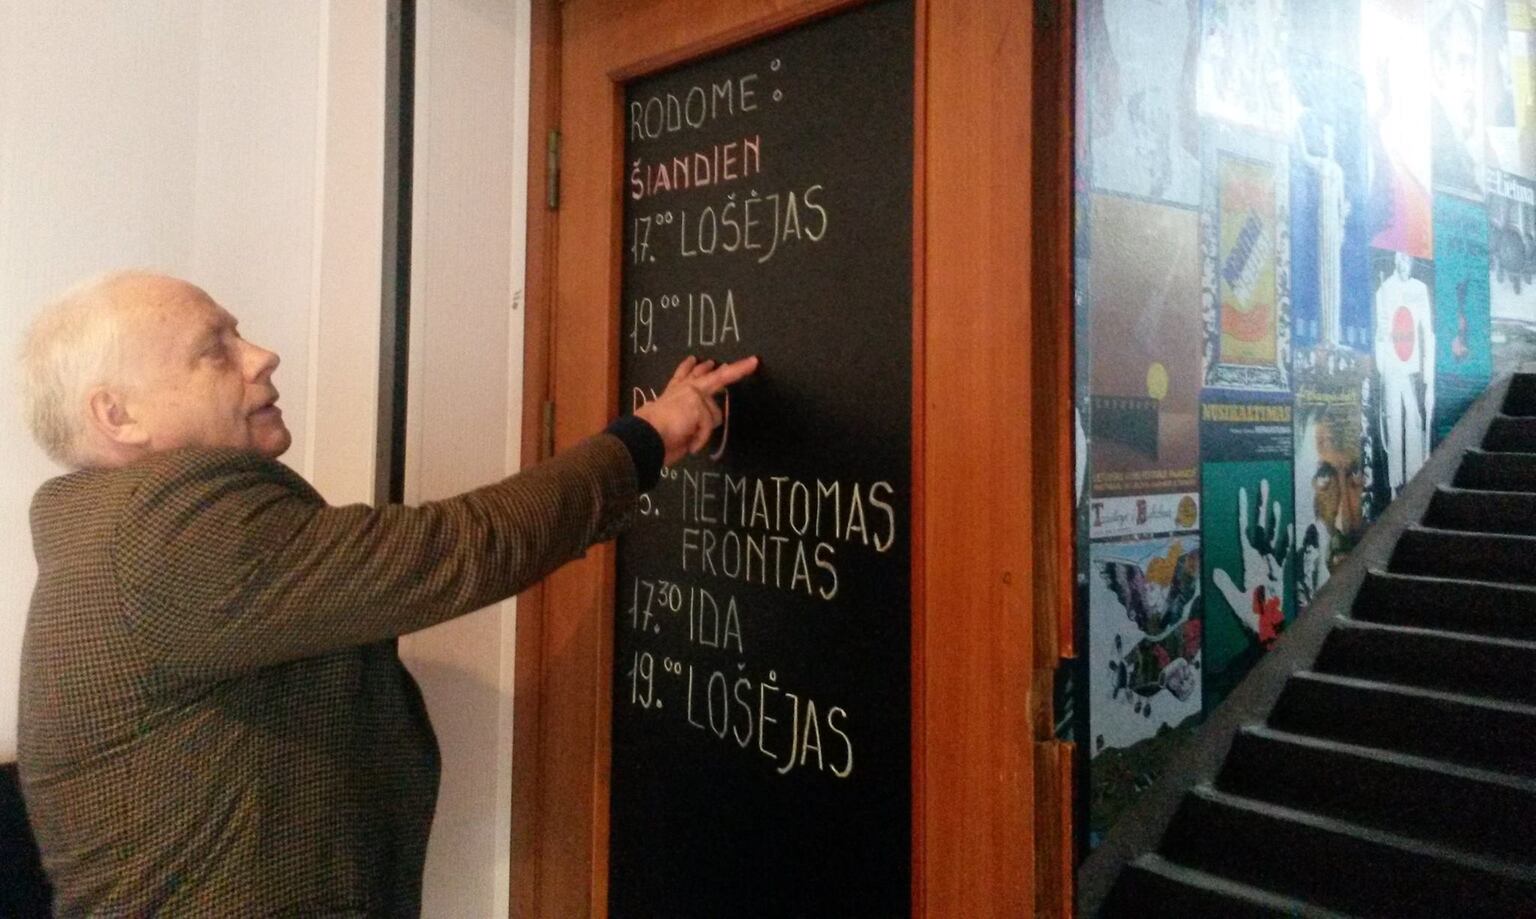 RODOME:
ŠIANDIEN
17.⁰⁰ LOŠĖJAS
19.⁰⁰ IDA
NEMATOMAS
FRONTAS
17.³⁰ IDA
19.⁰⁰ LOŠĖJAS
NUSIKALTIMAS